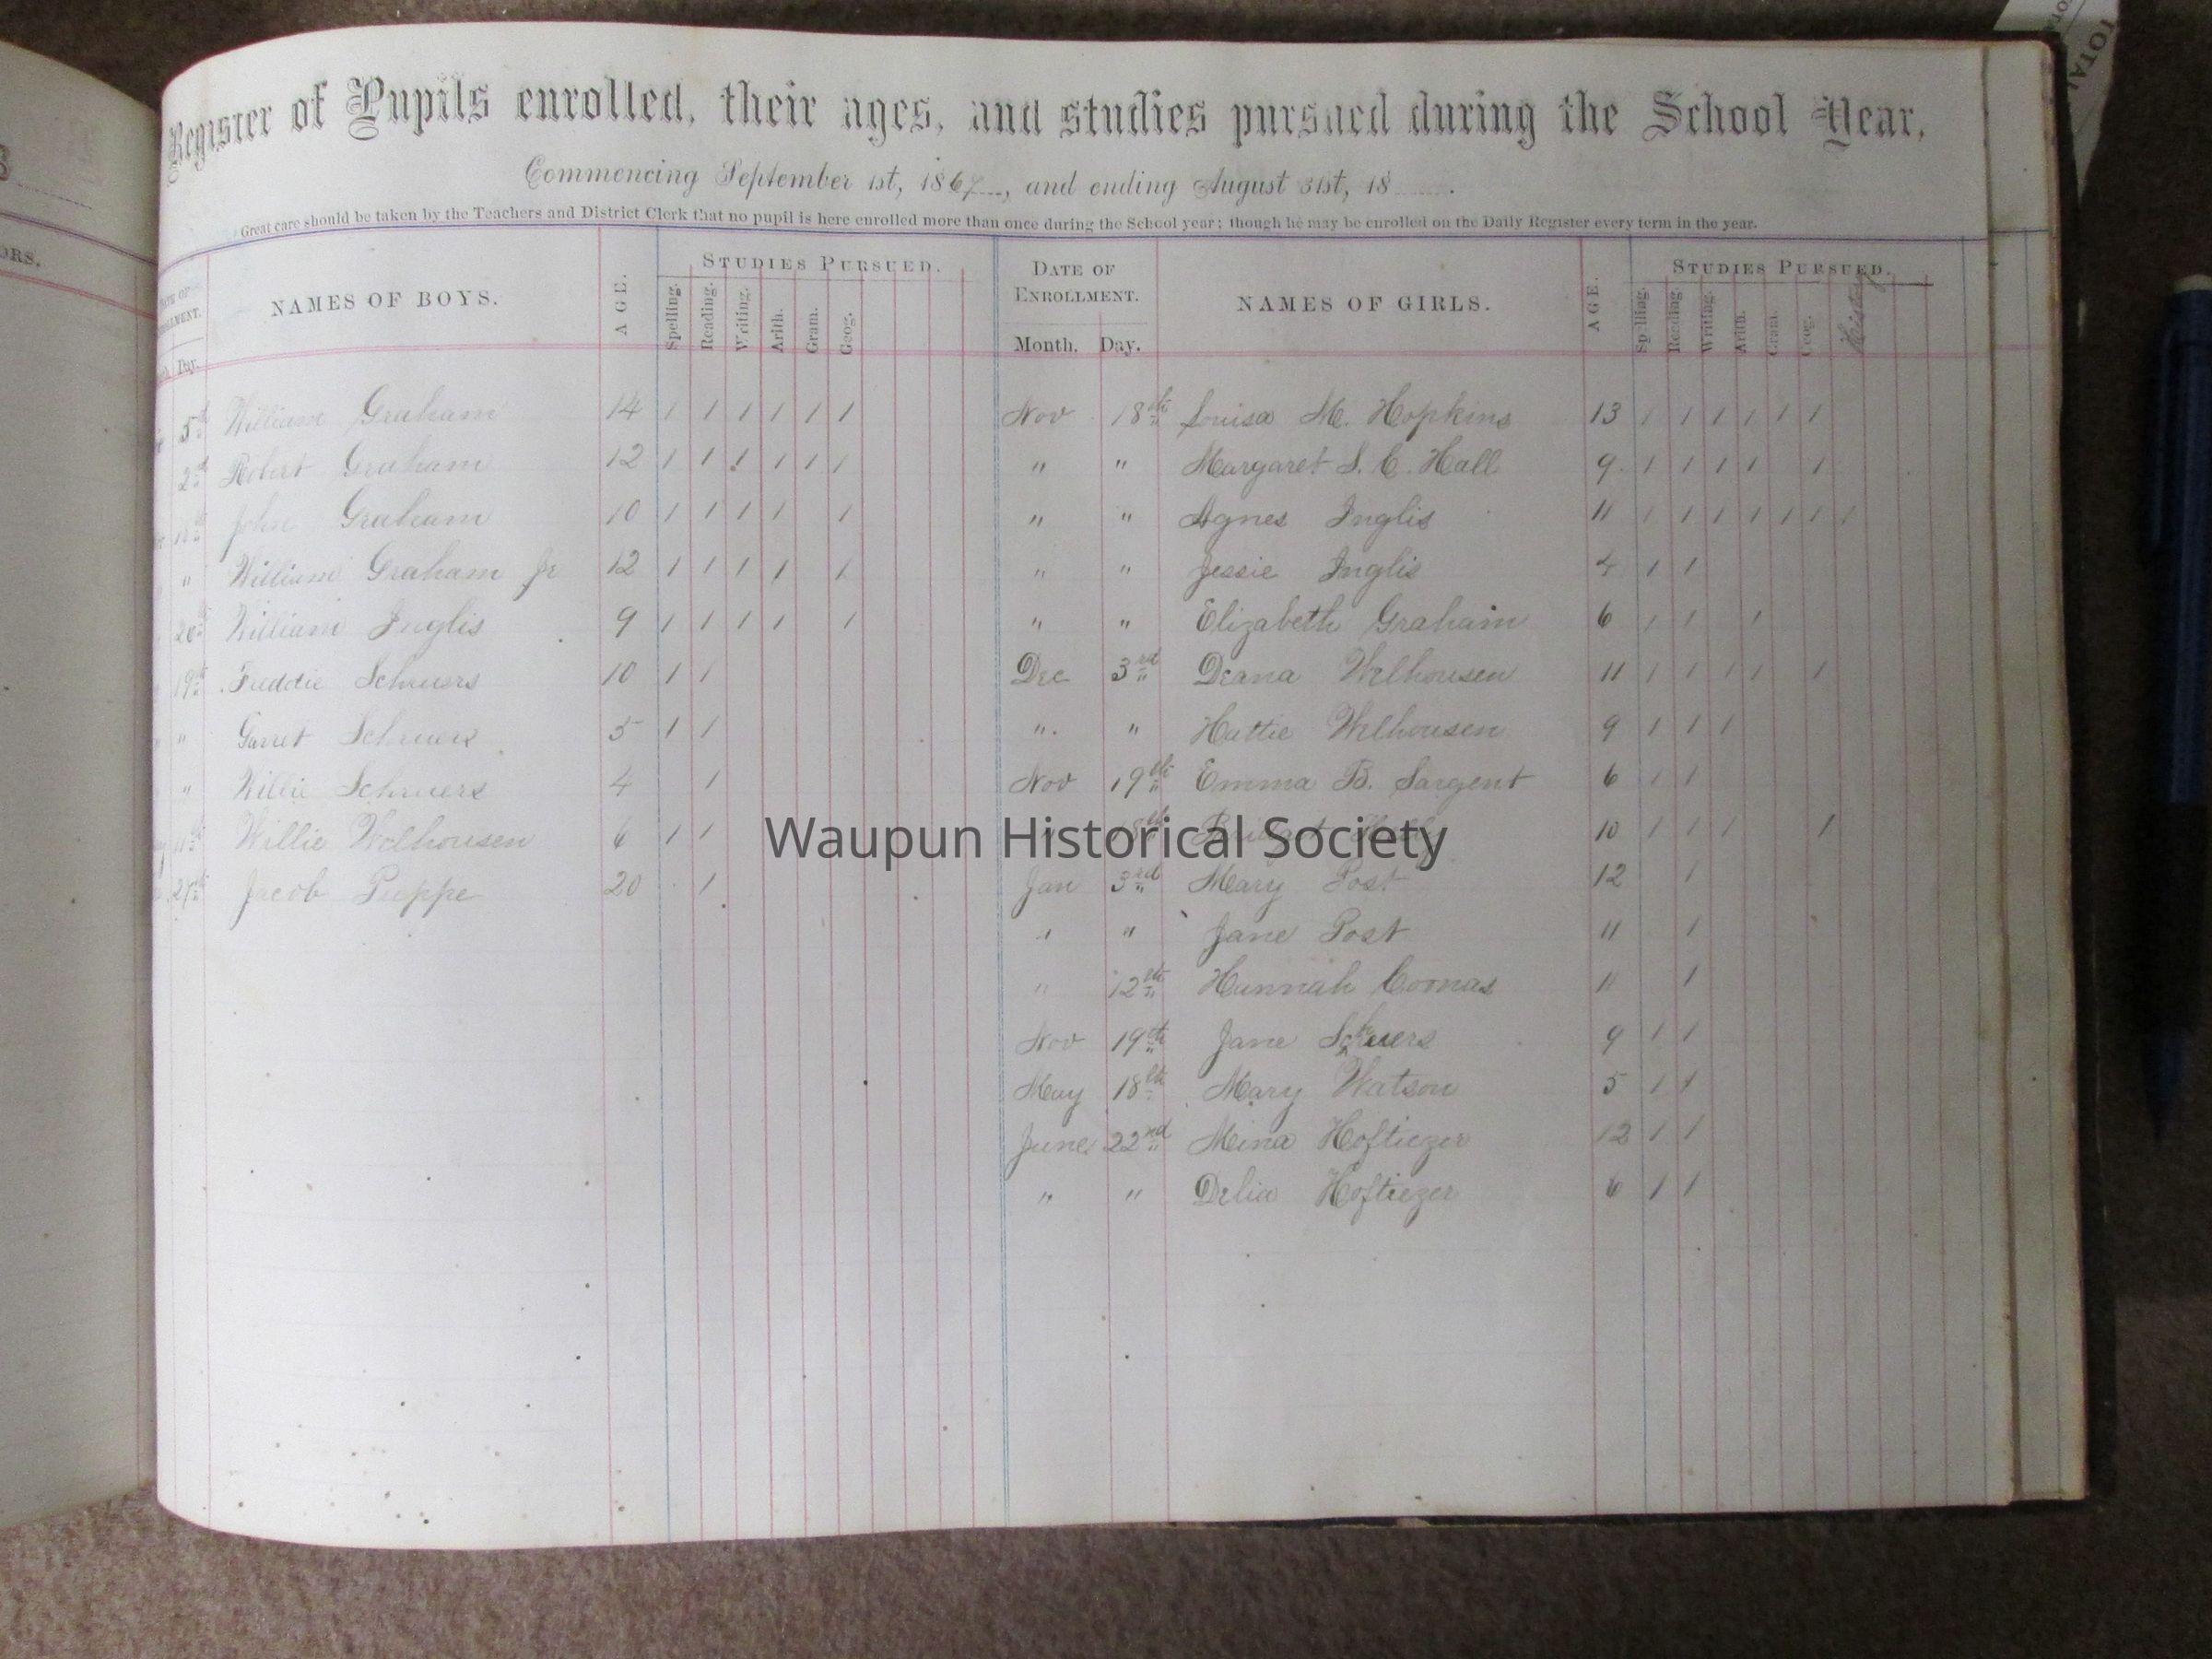 Register of Pupils enrolled, their ages, and studies pursued during the School Year,
Commencing September 1st, 1867, and ending August 31st, 18
Great care should be taken by the Teachers and District Clerk that no pupil is here enrolled more than once during the School year; though he may be enrolled on the Daily Register every term in the year.
ORS.
TOTAL
NAMES OF BOYS. AGE. STUDIES PURSUED. DATE OF ENROLLMENT. NAMES OF GIRLS. AGE. STUDIES PURSUED.
Day. Spelling. Reading. Writing. Arith. Gram. Geog. Month. Day. Spelling. Reading. Writing. Arith. Gram. Geog. History
William Graham 14 / / / / / / Nov 18th Louisa M. Hopkins 13 / / / / / /
2d Robert Graham 12 / / / / / / " " Margaret S. C. Hall 9 / / / / /
John Graham 10 / / / / / " " Agnes Inglis 11 / / / / / / /
" William Graham Jr 12 / / / / / " " Jessie Inglis 4 / /
20th William Inglis 9 / / / / / " " Elizabeth Graham 6 / / /
19th Freddie Schruers 10 / / Dec 3rd Deana Welhousen 11 / / / / /
" Garret Schruers 5 / / " " Hattie Welhousen 9 / / /
" Willie Schruers 4 / Nov 19th Emma B. Sargent 6 / /
11th Willie Welhousen 6 / / 18th 10 / / / /
27th Jacob Pieppe 20 / Jan 3rd Mary Post 12 /
" " Jane Post 11 /
" 12th Hannah Coomas 11 /
Nov 19th Jane Schuers 9 / /
May 18th Mary Watson 5 / /
June 22nd Mina Hoftiezer 12 / /
" " Delia Hoftiezer 6 / /
Waupun Historical Society